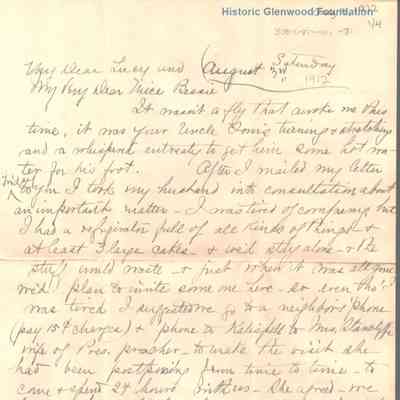 Historic Glenwood Foundation
1/4
Saturday
My Dear Lucy and (August 3rd
My Very Dear Niece Bessie 1912
It wasn't a fly that awoke me this
time, it was your Uncle Tom's turning & stretching
and a whispered entreaty to get him some hot wa-
ter for his foot. After I mailed my letter
to you Friday I took my husband into consultation about
an important matter - I was tired of company but
I had a refrigirator full of all kinds of things - &
at least 3 large cakes - & we'd stay alone - & the
stuff would waste - & just when it was all gone
we'd plan to invite some one here - so even tho' I
was tired I suggested we go to a neighbor's phone
(pay 15¢ charges) & phone to to Mrs.
wife of Pres. preacher - to make the visit she
had been postponing from time to time - to
come & spend 24 hours with us - She agreed - we